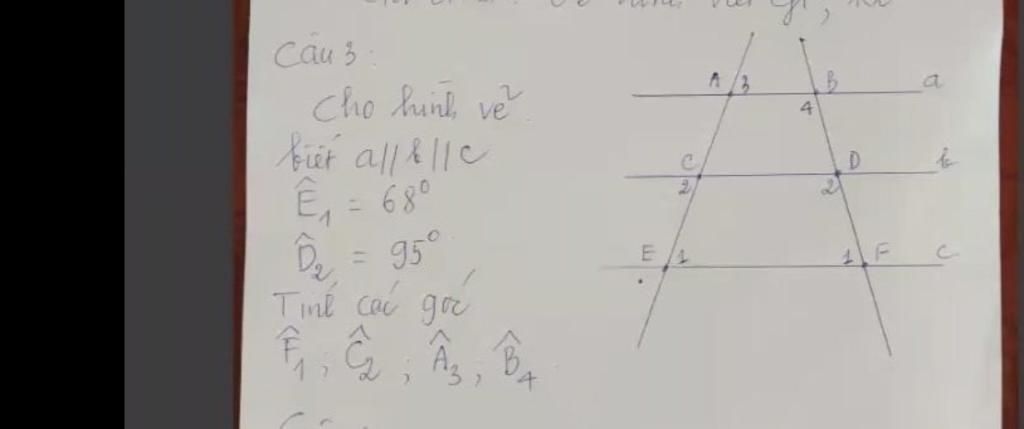 Câu 3:
Cho hình vẽ.
biết a//b//c
Ê₁ = 68⁰
D̂₂ = 95⁰
Tính các góc
F̂₁ ; Ĉ₂ ; Â₃ ; B̂₄
A 3 B a
4
C D b
2 2
E 1 1 F c